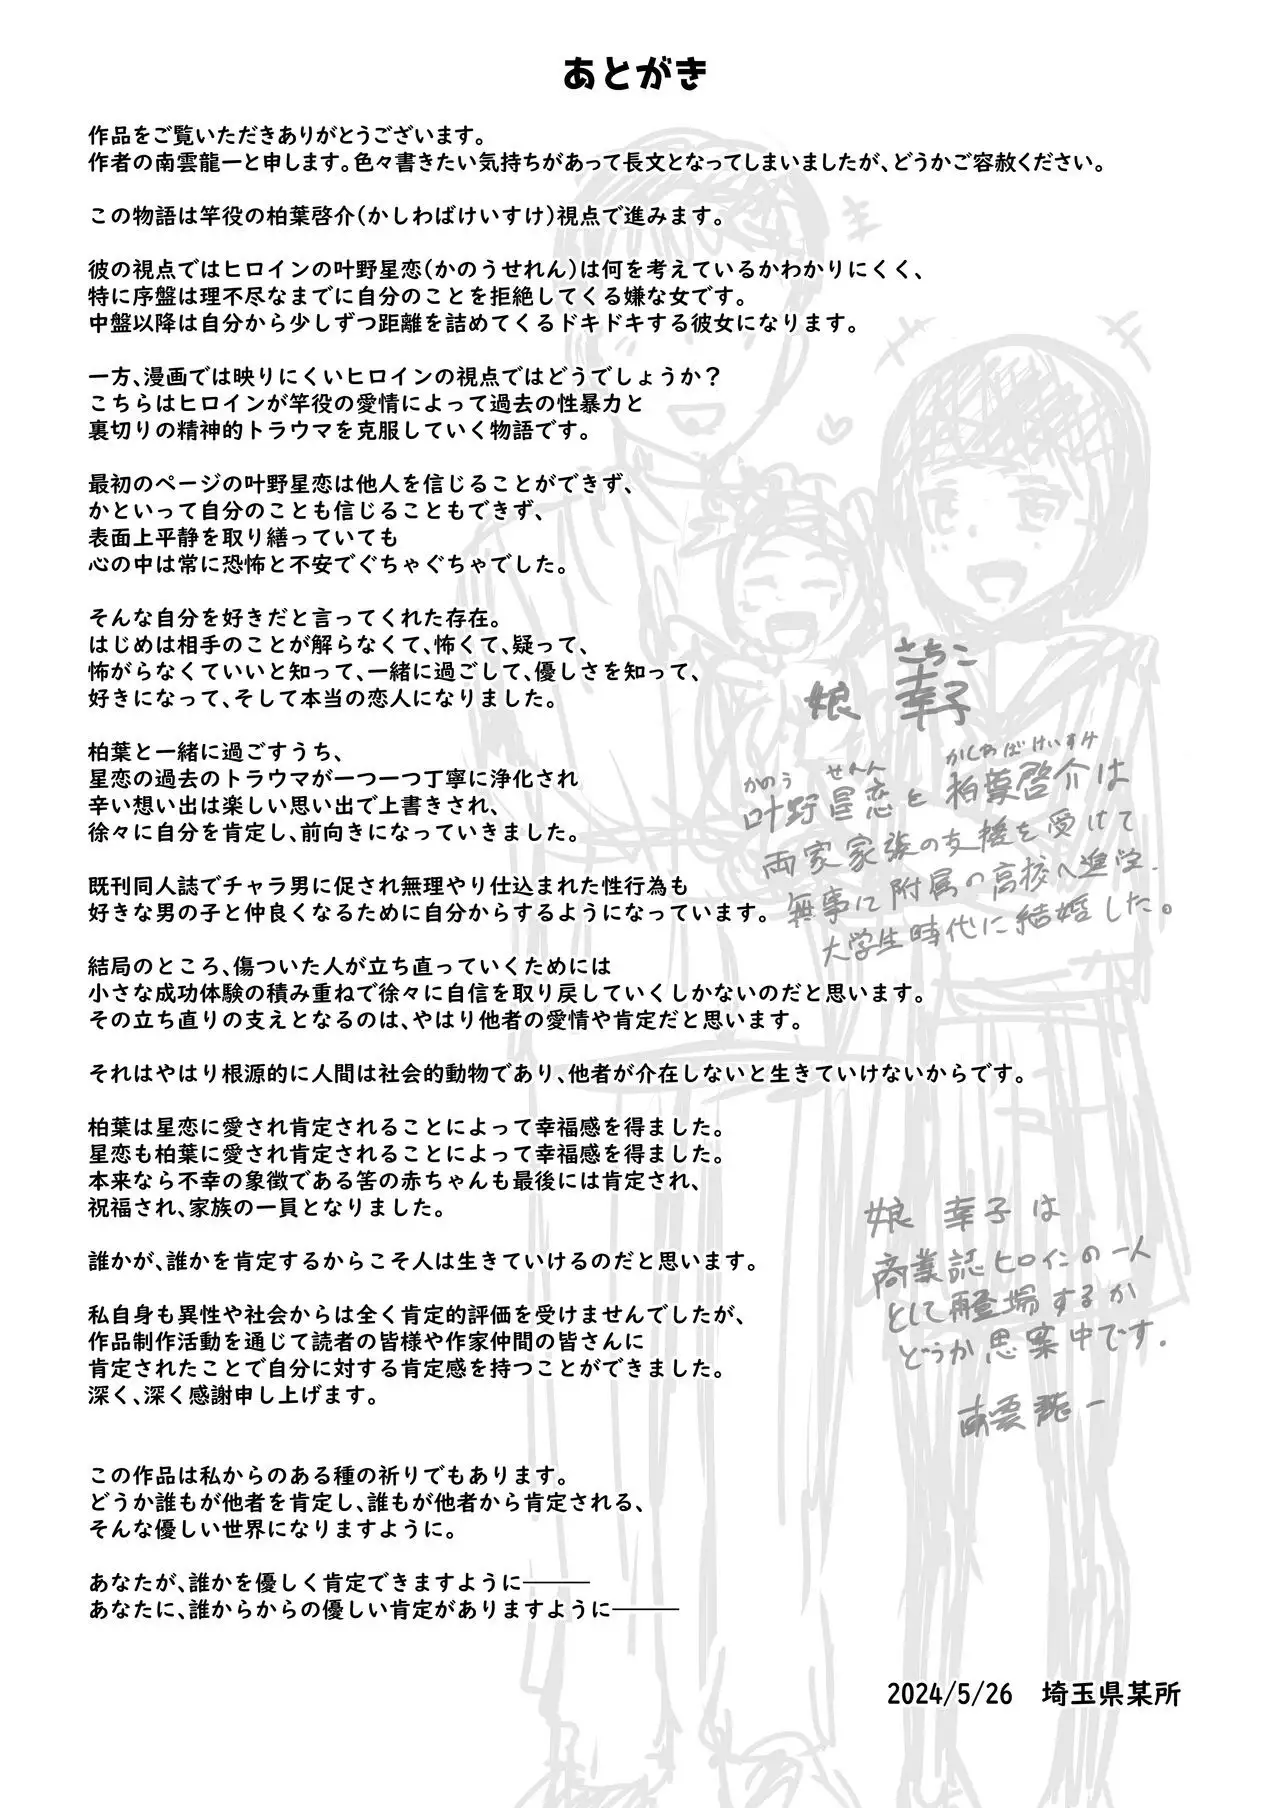 あとがき
作品をご覧いただきありがとうございます。
作者の南雲龍一と申します。色々書きたい気持ちがあって長文となってしまいましたが、どうかご容赦ください。
この物語は竿役の柏葉啓介(かしわばけいすけ)視点で進みます。
彼の視点ではヒロインの叶野星恋(かのうせれん)は何を考えているかわかりにくく、
特に序盤は理不尽なまでに自分のことを拒絶してくる嫌な女です。
中盤以降は自分から少しずつ距離を詰めてくるドキドキする彼女になります。
一方、漫画では映りにくいヒロインの視点ではどうでしょうか？
こちらはヒロインが竿役の愛情によって過去の性暴力と
裏切りの精神的トラウマを克服していく物語です。
最初のページの叶野星恋は他人を信じることができず、
かといって自分のことも信じることもできず、
表面上平静を取り繕っていても
心の中は常に恐怖と不安でぐちゃぐちゃでした。
そんな自分を好きだと言ってくれた存在。
はじめは相手のことが解らなくて、怖くて、疑って、
怖がらなくていいと知って、一緒に過ごして、優しさを知って、
好きになって、そして本当の恋人になりました。
柏葉と一緒に過ごすうち、
星恋の過去のトラウマが一つ一つ丁寧に浄化され
辛い想い出は楽しい思い出で上書きされ、
徐々に自分を肯定し、前向きになっていきました。
既刊同人誌でチャラ男に促され無理やり仕込まれた性行為も
好きな男の子と仲良くなるために自分からするようになっています。
結局のところ、傷ついた人が立ち直っていくためには
小さな成功体験の積み重ねで徐々に自信を取り戻していくしかないのだと思います。
その立ち直りの支えとなるのは、やはり他者の愛情や肯定だと思います。
それはやはり根源的に人間は社会的動物であり、他者が介在しないと生きていけないからです。
柏葉は星恋に愛され肯定されることによって幸福感を得ました。
星恋も柏葉に愛され肯定されることによって幸福感を得ました。
本来なら不幸の象徴である筈の赤ちゃんも最後には肯定され、
祝福され、家族の一員となりました。
誰かが、誰かを肯定するからこそ人は生きていけるのだと思います。
私自身も異性や社会からは全く肯定的評価を受けませんでしたが、
作品制作活動を通じて読者の皆様や作家仲間の皆さんに
肯定されたことで自分に対する肯定感を持つことができました。
深く、深く感謝申し上げます。
この作品は私からのある種の祈りでもあります。
どうか誰もが他者を肯定し、誰もが他者から肯定される、
そんな優しい世界になりますように。
あなたが、誰かを優しく肯定できますように———
あなたに、誰からからの優しい肯定がありますように———
さちこ
娘 幸子
かのう せれん かしわばけいすけ
叶野星恋と柏葉啓介は
両家家族の支援を受けて
無事に附属の高校へ進学.
大学生時代に結婚した。
娘 幸子は
商業誌ヒロインの一人
として再登場するか
どうか思案中です.
南雲龍一
2024/5/26 埼玉県某所